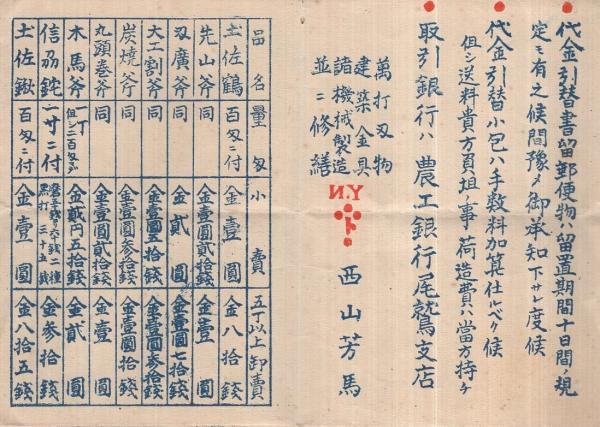 代金引替書留郵便物ハ留置期間十日間ノ規
定ニ有之候間豫メ御承知下サレ度候
代金引替小包ハ手数料加算仕ルベク候
但シ送料貴方負担ノ事荷造費ハ當方持チ
取引銀行ハ農工銀行尾鷲支店
萬打刃物
建築金具
諸機械製造
並ニ修繕
N.Y
西山芳馬
品名 量匁 小賣 五丁以上卸賣
土佐鶴 百匁ニ付 金壹圓 金八拾錢
先山斧 同 金壹圓貳拾錢 金壹圓
刄廣斧 同 金貳圓 金壹圓七拾錢
大工割斧 同 金壹圓五拾錢 金壹圓参拾錢
炭焼斧 同 金壹圓参拾錢 金壹圓
丸頭巻斧 同 金壹圓貳拾錢 金壹圓
木馬斧 一丁 但シ二百匁 金貳円五拾錢 金貳圓
信刕鉈 一才ニ付 三十五錢 金参拾錢
土佐鍬 百匁ニ付 金壹圓 金八拾五錢